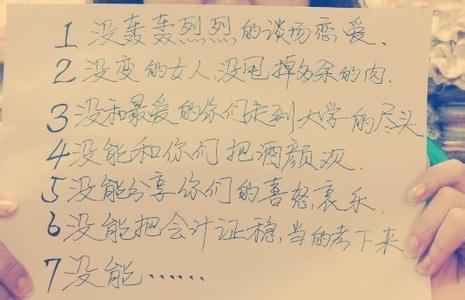 1 没轰轰烈烈的谈场恋爱.
2 没变的女人,没甩掉多余的肉.
3 没和最爱的你们走到大学的尽头
4 没能和你们把酒颜欢.
5 没能分享你们的喜怒哀乐.
6 没能把会计证稳当的考下来
7 没能……